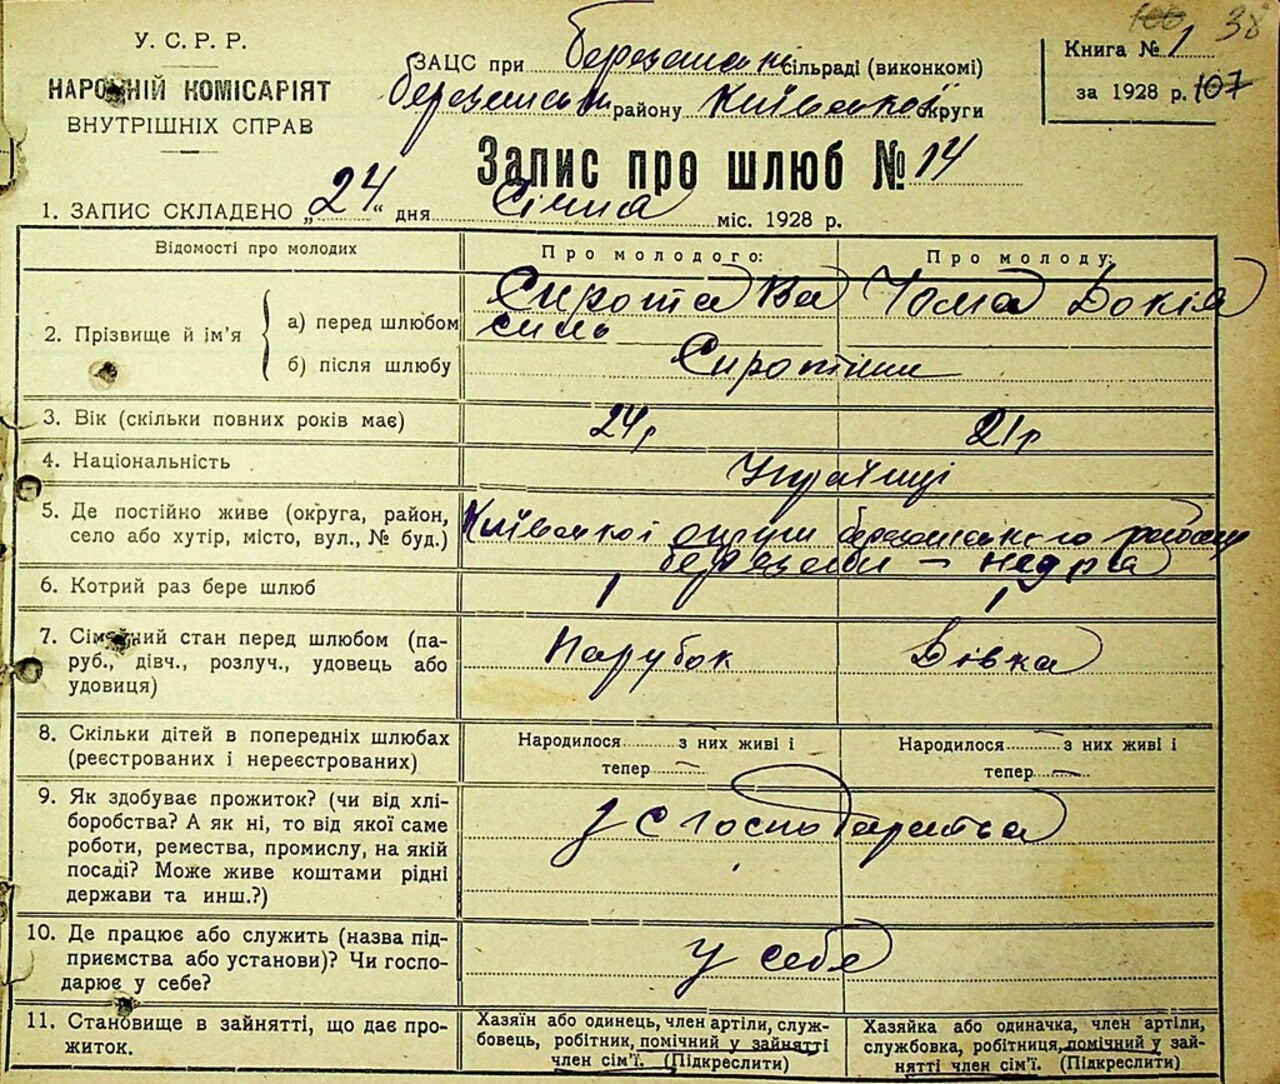 100 38
У. С. Р. Р.
НАРОДНІЙ КОМІСАРІЯТ
ВНУТРІШНІХ СПРАВ
ЗАЦС при Березанські сільраді (виконкомі)
району Київської округи
Книга № 1
за 1928 р. 107
Запис про шлюб № 14
1. ЗАПИС СКЛАДЕНО „24“ дня Січня міс. 1928 р.
Відомості про молодих
Про молодого:
Про молоду:
2. Прізвище й ім’я
а) перед шлюбом
Сирота Ва
силь
Чома Докія
б) після шлюбу
Сиротіни
3. Вік (скільки повних років має)
24р
21р
4. Національність
Українці
5. Де постійно живе (округа, район,
село або хутір, місто, вул., № буд.)
Київської округи Березанського району
6. Котрий раз бере шлюб
1
1
7. Сімейний стан перед шлюбом (па-
руб., дівч., розлуч., удовець або
удовиця)
Парубок
Дівка
8. Скільки дітей в попередніх шлюбах
(реєстрованих і нереєстрованих)
Народилося з них живі і
тепер —
Народилося з них живі і
тепер —
9. Як здобуває прожиток? (чи від хлі-
боробства? А як ні, то від якої саме
роботи, ремества, промислу, на якій
посаді? Може живе коштами рідні
держави та инш.?)
з с господарства
10. Де працює або служить (назва під-
приємства або установи)? Чи госпо-
дарює у себе?
у себе
11. Становище в зайнятті, що дає про-
житок.
Хазяїн або одинець, член артіли, служ-
бовець, робітник, помічний у зайнятті
член сім’ї. (Підкреслити)
Хазяйка або одиначка, член артіли,
службовка, робітниця, помічний у зай-
нятті член сім’ї. (Підкреслити)